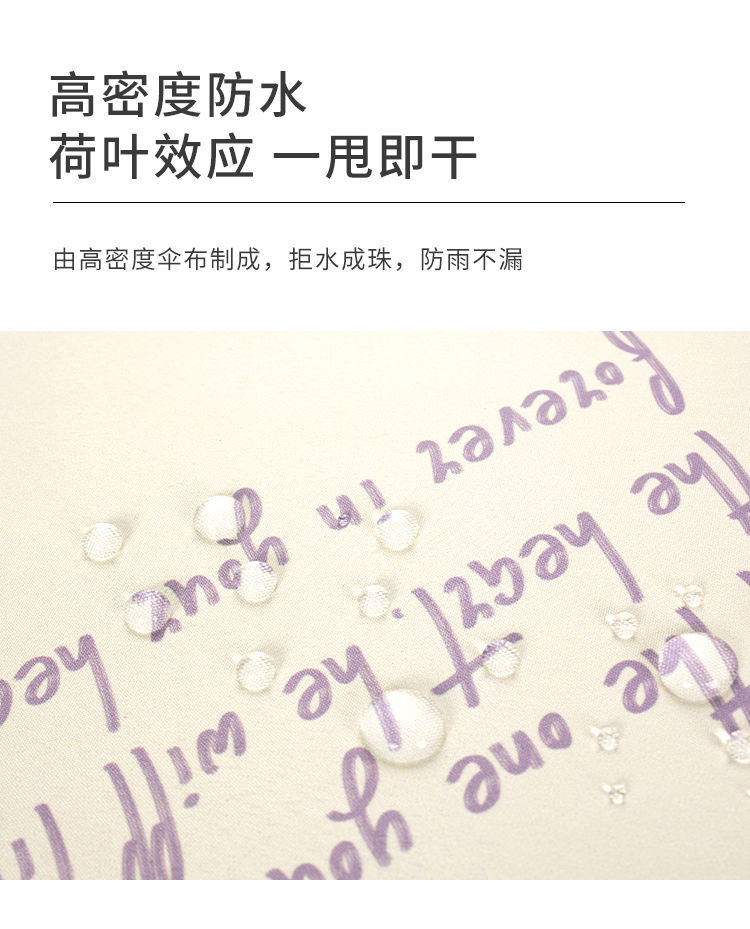 高密度防水
荷叶效应 一甩即干
由高密度伞布制成，拒水成珠，防雨不漏
forever in your
the heart. he will
the one you